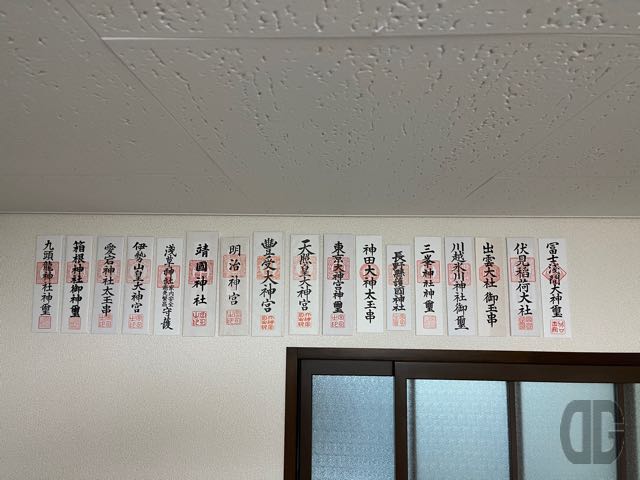 冨士淺間大神璽
伏見稲荷大社
出雲大社 御玉串
川越氷川神社御璽
三峯神社神璽
長野縣護國神社
神田大神太玉串
東京大神宮神璽
天照皇大神宮
豐受大神宮
明治神宮
靖國神社
浅草神社 守護
伊勢山皇大神宮
愛宕神社太玉串
箱根神社御神璽
九頭龍神社神璽
DG